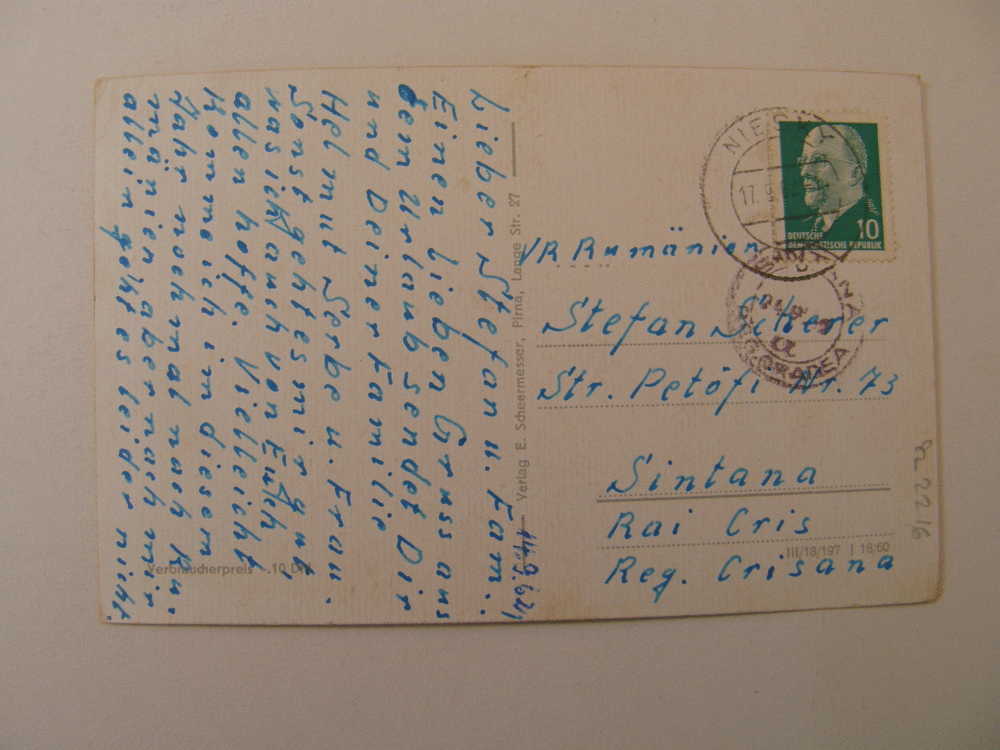 Lieber Stefan u. Fam.
Einen lieben Gruss aus
dem Urlaub sendet Dir
und Deiner Familie
Helmut Serbe u. Frau.
Sonst geht es mir gut,
was ich auch von Euch
allen hoffe. Vielleicht
komme ich in diesem
Jahr nochmal nach Ru-
mänien, aber nach mir
allein geht es leider nicht.
Verbraucherpreis -.10 DM
Verlag E. Scheermesser, Pirna, Lange Str. 27
NIESKY
17.
DEUTSCHE
DEMOKRATISCHE REPUBLIK
10
VR Rumänien
ORADEA
Stefan Scherer
Str. Petöfi Nr. 73
Sintana
Rai Cris
Reg. Crisana
III/18/197 J 16/60
a 2216